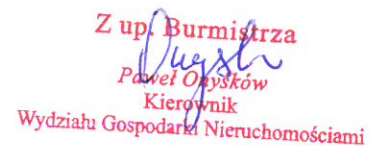 Z up. Burmistrza
Paweł Onyśków
Kierownik
Wydziału Gospodarki Nieruchomościami